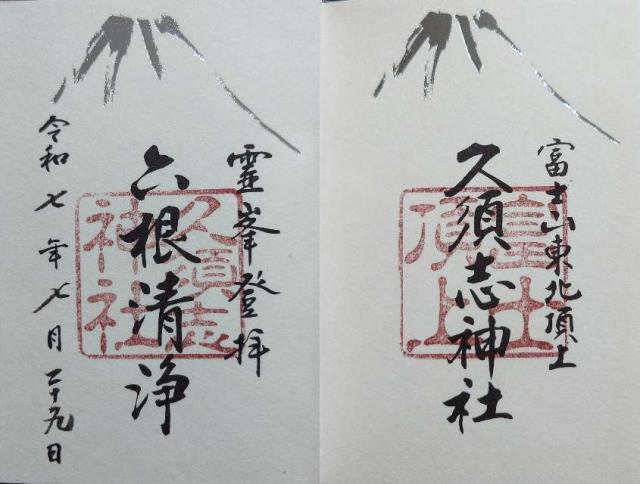 富士山東北頂上
久須志神社
冨士
頂上
霊峯登拝
六根清浄
久須志
神社
令和七年七月二十九日